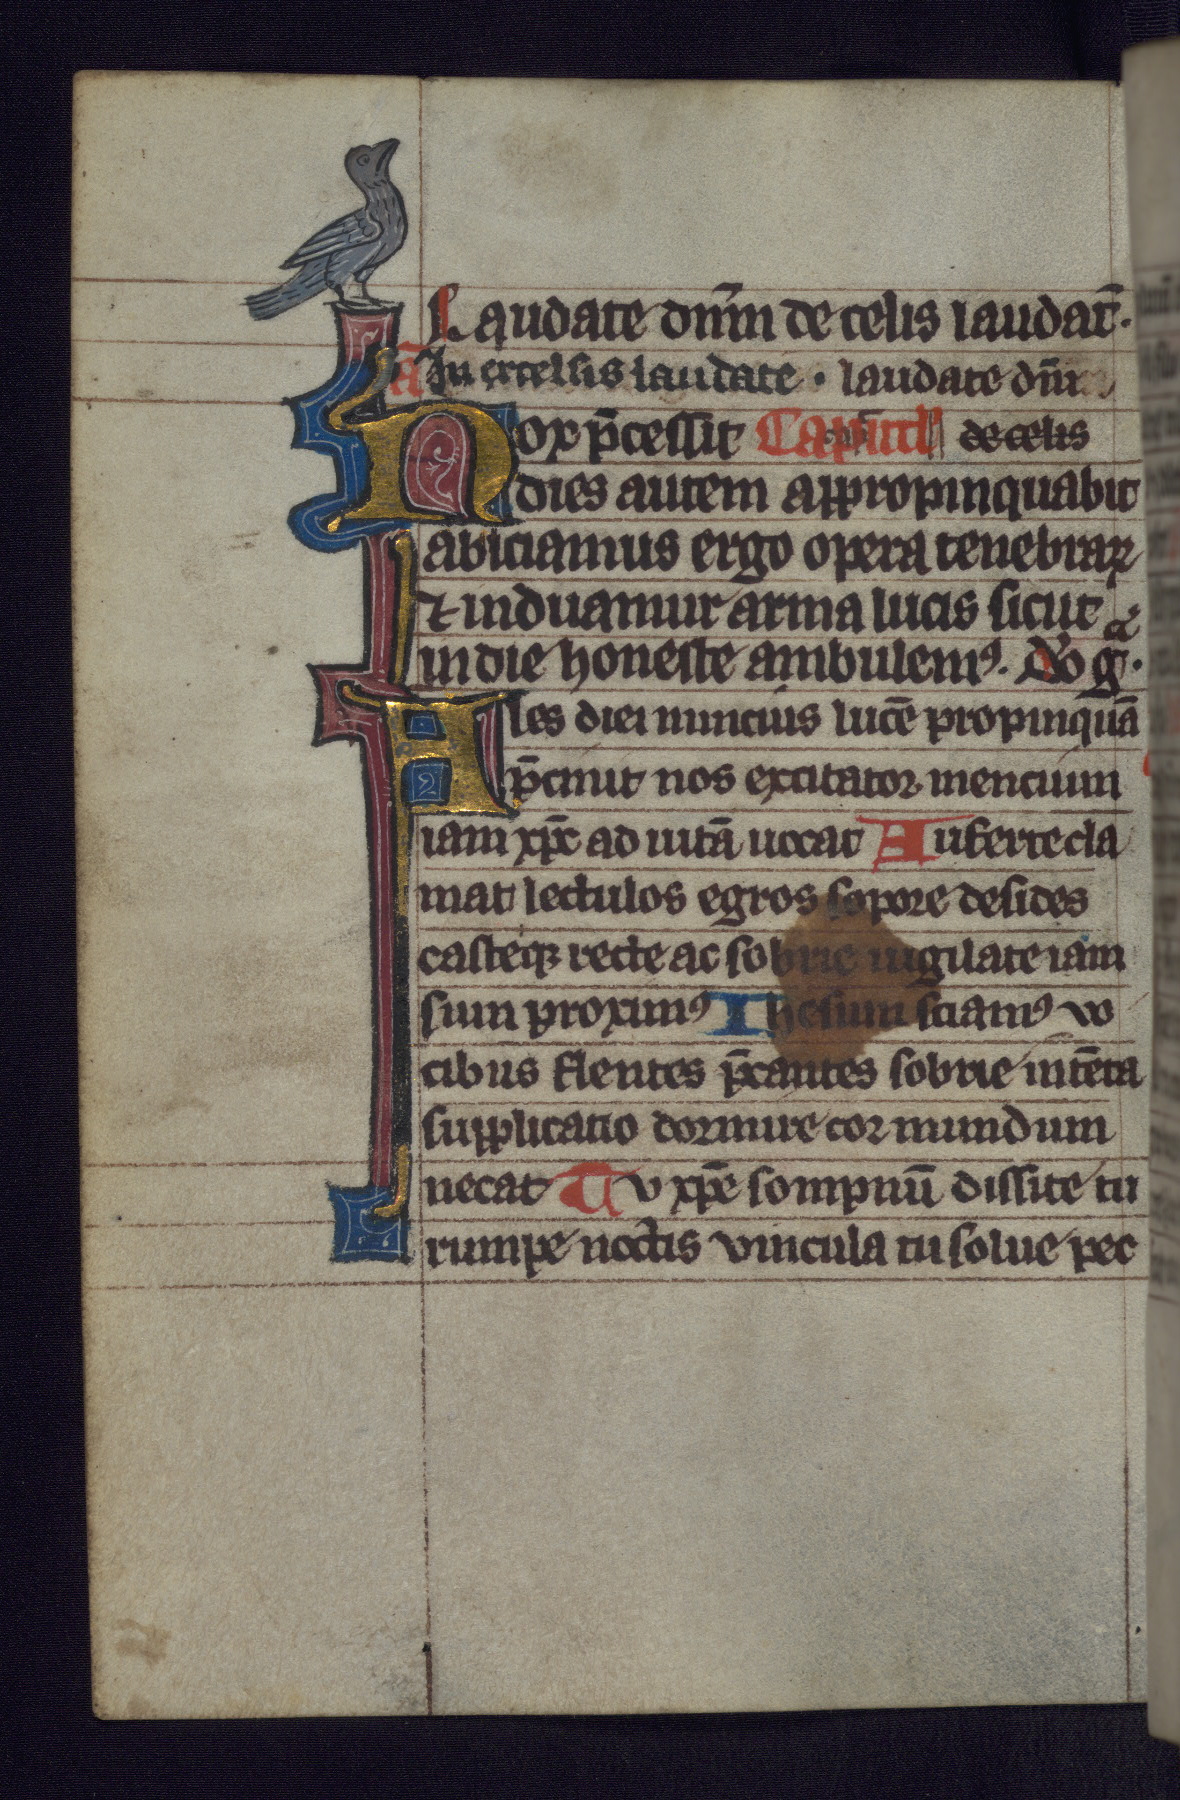 Laudate dnm̄ de celis laudat̄.
ā In excelsis laudate · laudate dn̄m
Nox p̄cessit Capitl̄ de celis
dies autem appropinquabit
abiciamus ergo opera tenebraꝝ
⁊ induamur arma lucis sicut
in die honeste ambulemꝰ. Dō gᵃ·
Ales diei nuncius lucē propinquā
p̄cinit nos excitator mencium
iam xp̄c ad uitā uocat Auferte cla
mat lectulos egros sopore desides
casteqꝫ recte ac sobrie uigilate iam
sum proximꝰ Ihesum sciamꝰ vo
cibus flentes p̄cantes sobrie intēta
supplicatio dormire cor mundum
necat Tu xp̄e sompnū dissice tu
rumpe noctis vincula tu solue pec